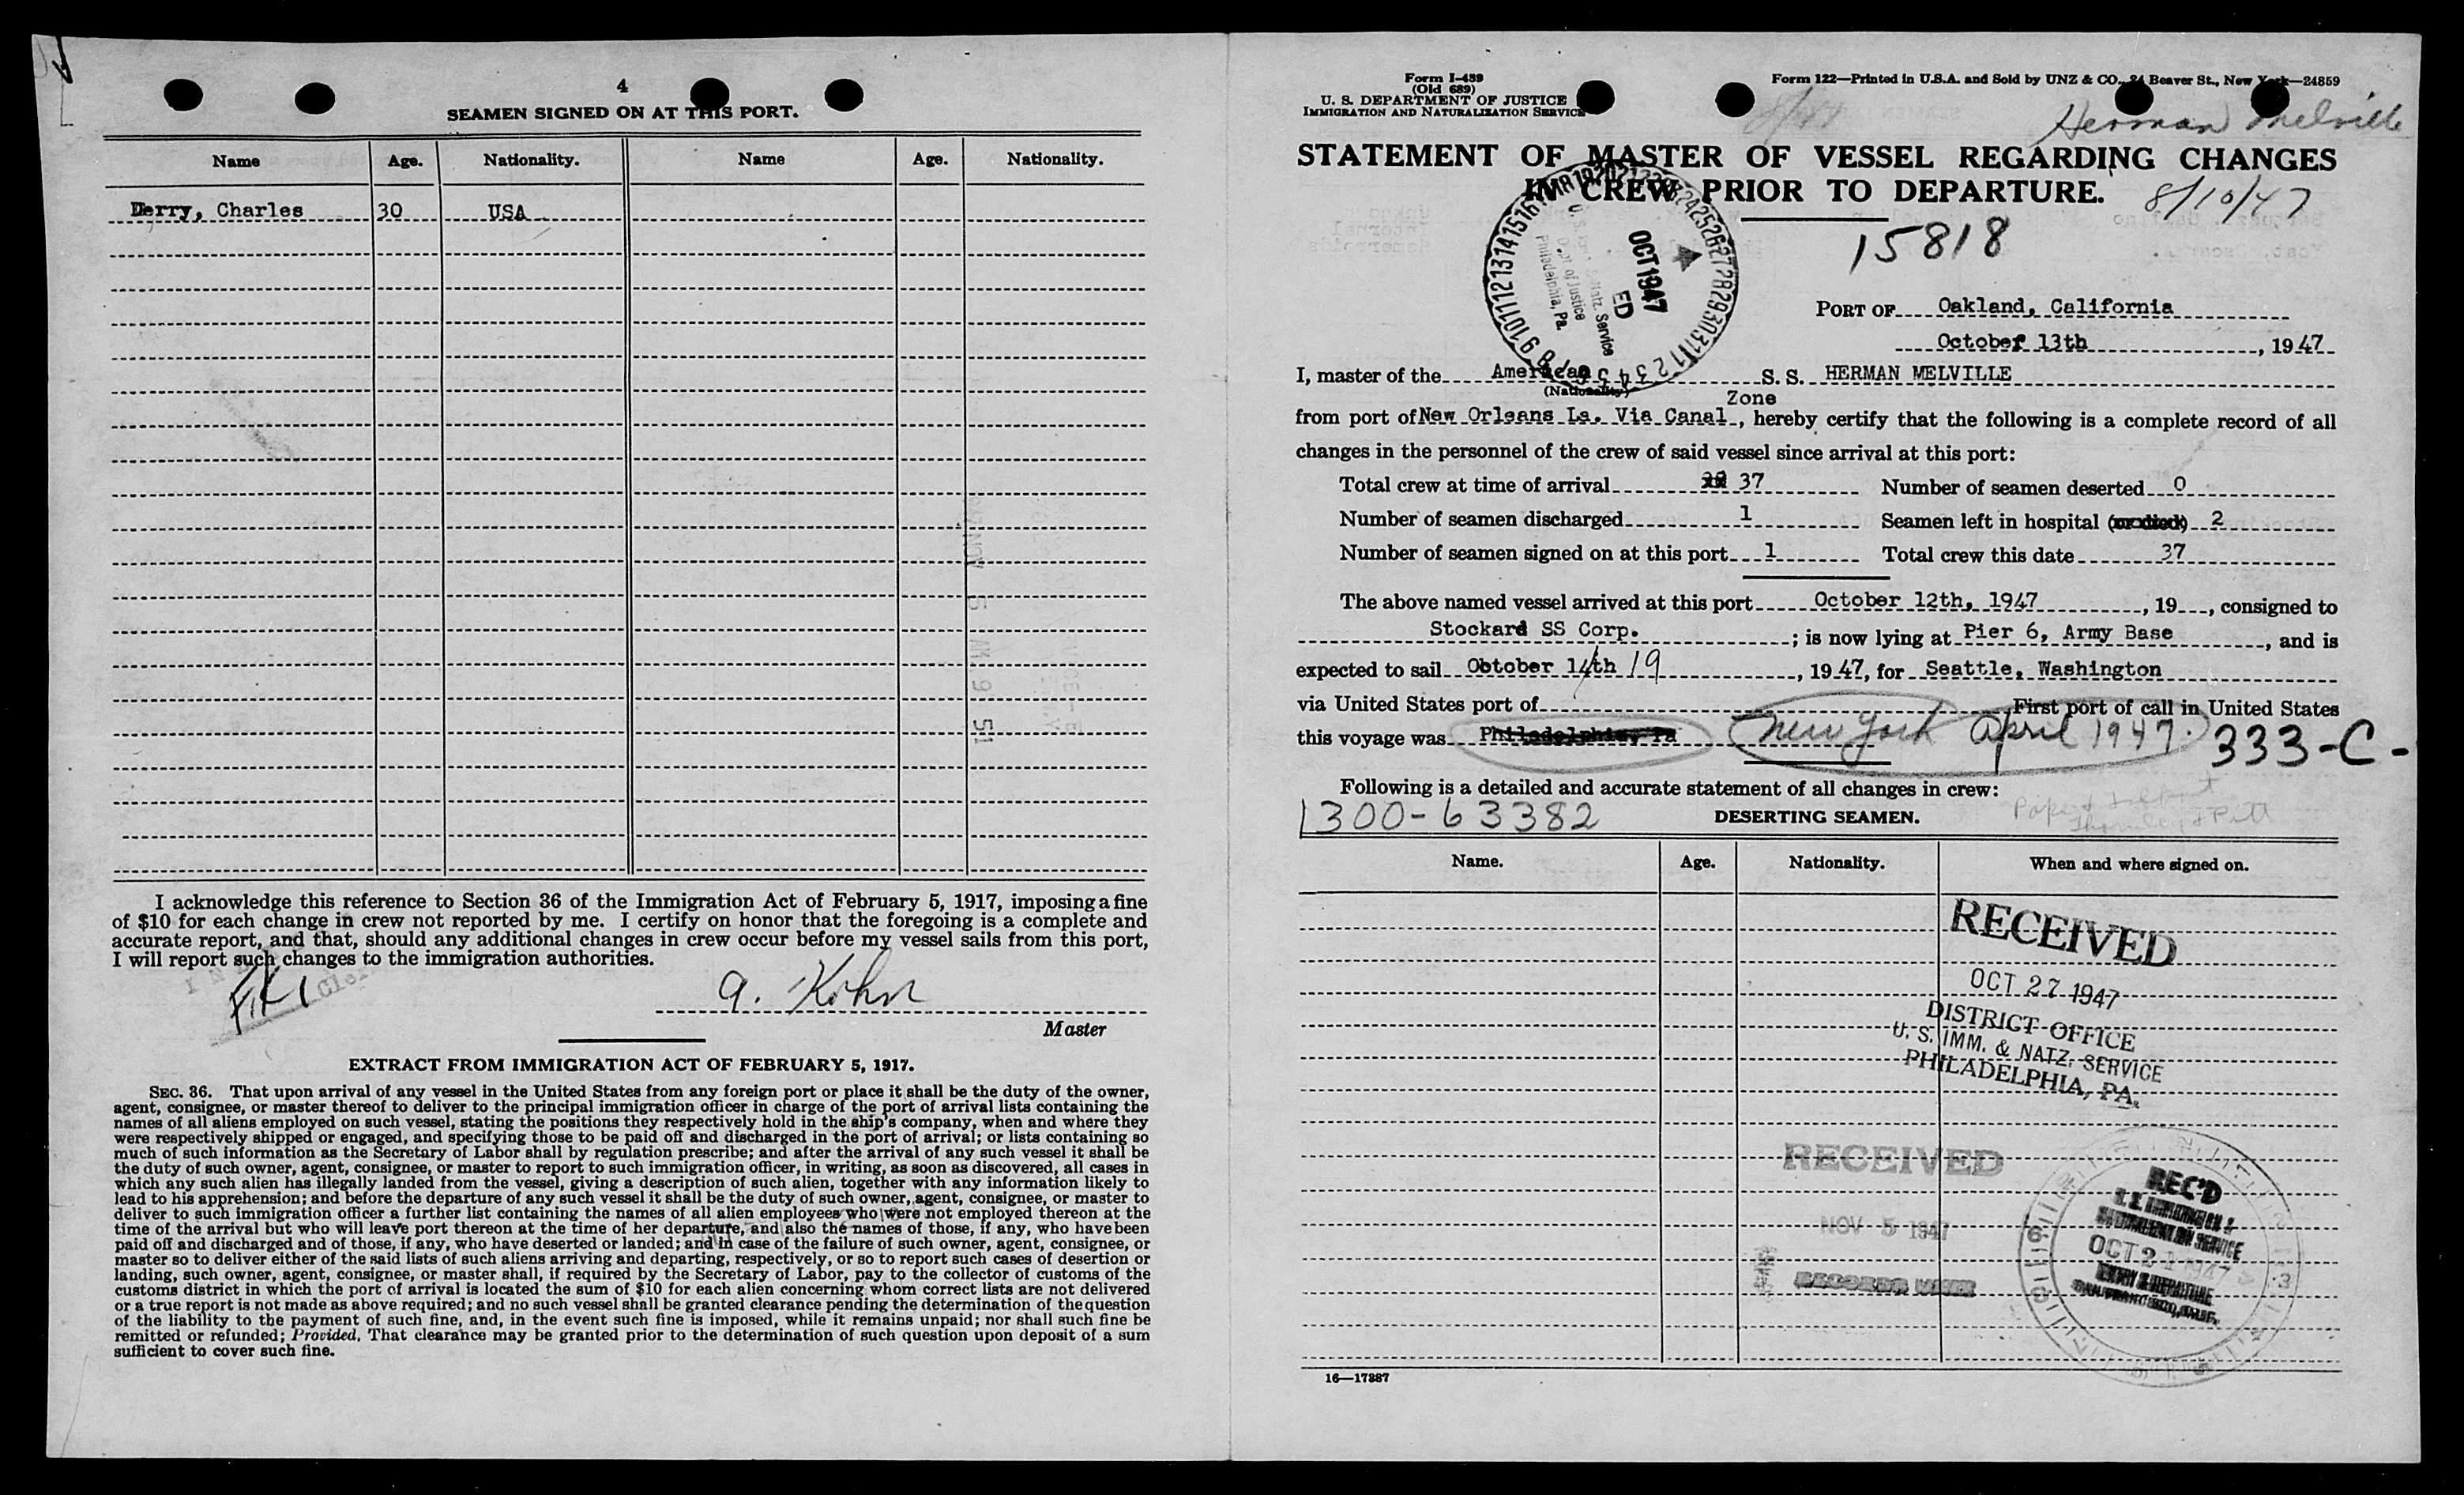 4
SEAMEN SIGNED ON AT THIS PORT.
Name Age. Nationality. Name Age. Nationality.
Derry, Charles 30 USA
I acknowledge this reference to Section 36 of the Immigration Act of February 5, 1917, imposing a fine
of $10 for each change in crew not reported by me. I certify on honor that the foregoing is a complete and
accurate report, and that, should any additional changes in crew occur before my vessel sails from this port,
I will report such changes to the immigration authorities.
a. Kohn
Master
EXTRACT FROM IMMIGRATION ACT OF FEBRUARY 5, 1917.
SEC. 36. That upon arrival of any vessel in the United States from any foreign port or place it shall be the duty of the owner,
agent, consignee, or master thereof to deliver to the principal immigration officer in charge of the port of arrival lists containing the
names of all aliens employed on such vessel, stating the positions they respectively hold in the ship's company, when and where they
were respectively shipped or engaged, and specifying those to be paid off and discharged in the port of arrival; or lists containing so
much of such information as the Secretary of Labor shall by regulation prescribe; and after the arrival of any such vessel it shall be
the duty of such owner, agent, consignee, or master to report to such immigration officer, in writing, as soon as discovered, all cases in
which any such alien has illegally landed from the vessel, giving a description of such alien, together with any information likely to
lead to his apprehension; and before the departure of any such vessel it shall be the duty of such owner, agent, consignee, or master to
deliver to such immigration officer a further list containing the names of all alien employees who were not employed thereon at the
time of the arrival but who will leave port thereon at the time of her departure, and also the names of those, if any, who have been
paid off and discharged and of those, if any, who have deserted or landed; and in case of the failure of such owner, agent, consignee, or
master so to deliver either of the said lists of such aliens arriving and departing, respectively, or so to report such cases of desertion or
landing, such owner, agent, consignee, or master shall, if required by the Secretary of Labor, pay to the collector of customs of the
customs district in which the port of arrival is located the sum of $10 for each alien concerning whom correct lists are not delivered
or a true report is not made as above required; and no such vessel shall be granted clearance pending the determination of the question
of the liability to the payment of such fine, and, in the event such fine is imposed, while it remains unpaid; nor shall such fine be
remitted or refunded; Provided, That clearance may be granted prior to the determination of such question upon deposit of a sum
sufficient to cover such fine.
Form I-489
(Old 689)
U. S. DEPARTMENT OF JUSTICE
IMMIGRATION AND NATURALIZATION SERVICE
Form 122—Printed in U.S.A. and Sold by UNZ & CO., 24 Beaver St., New York—24859
Herman Melville
STATEMENT OF MASTER OF VESSEL REGARDING CHANGES
IN CREW PRIOR TO DEPARTURE.
8/10/47
15818
OCT 1947
Philadelphia, Pa.
PORT OF Oakland, California
October 13th, 1947
I, master of the American S. S. HERMAN MELVILLE
(Nationality)
Zone
from port of New Orleans La. Via Canal, hereby certify that the following is a complete record of all
changes in the personnel of the crew of said vessel since arrival at this port:
Total crew at time of arrival 37 Number of seamen deserted 0
Number of seamen discharged 1 Seamen left in hospital (or died) 2
Number of seamen signed on at this port 1 Total crew this date 37
The above named vessel arrived at this port October 12th, 1947, 19, consigned to
Stockard SS Corp.; is now lying at Pier 6, Army Base, and is
expected to sail October 14th 19, 1947, for Seattle, Washington
via United States port of First port of call in United States
this voyage was Philadelphia, Pa New York April 1947. 333-C-
Following is a detailed and accurate statement of all changes in crew:
1300-63382
DESERTING SEAMEN.
Name. Age. Nationality. When and where signed on.
RECEIVED
OCT 27 1947
DISTRICT OFFICE
U. S. IMM. & NATZ. SERVICE
PHILADELPHIA, PA.
RECEIVED
NOV 5 1947
RECORDS UNIT
REC'D
OCT 21 1947
16—17387